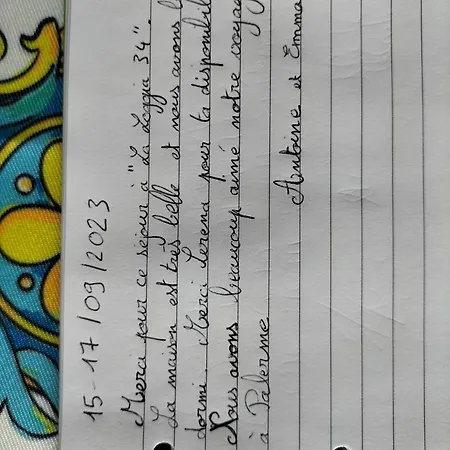 15-17/09/2023
Merci pour ce séjour à "La Loggia 34".
La maison est très belle et nous avons
dormi. Merci Serena pour ta
Nous avons beaucoup aimé notre
à Palerme
Antoine et Emma